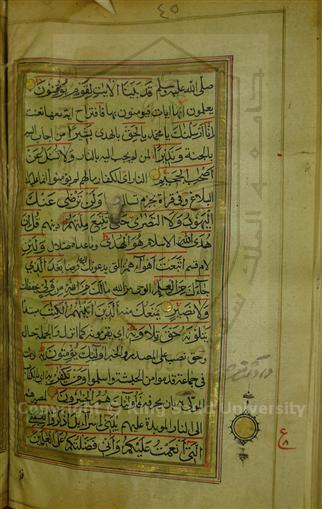 ٤٥
صلى الله عليه وسلم قد بينا الايت لقوم يوقنون
يعلمون انها ايات فيؤمنون بها فاقتراح اية معها تعنت
انا ارسلنك يا محمد بالحق بالهدى بشيرا من اجاب اليه
بالجنة ونذيرا من لم يجب اليه بالنار ولا تسئل عن
اصحب الجحيم النار اى الكفار ما لهم لم يؤمنوا انما عليك
البلاغ وفى قراءة بجزم تسئل ولن ترضى عنك
اليهود ولا النصرى حتى تتبع ملتهم دينهم قل ان
هدى الله الاسلام هو الهدى وما عداه ضلال ولئن
لام قسم اتبعت اهواءهم التى يدعونك اليها فرضا بعد الذى
جاءك من العلم الوحى من الله مالك من الله من ولى يحفظك
ولا نصير يمنعك منه الذين اتينهم الكتب مبتدا
يتلونه حق تلاوته اى يقرؤنه كما انزل والجملة حال
وحق نصب على المصدر والخبر اولئك يؤمنون به نزلت
فى جماعة قدموا من الحبشة واسلموا ومن يكفر به اى بالكتاب
المؤتى بان يحرفه فاولئك هم الخسرون لمصيرهم
الى النار المؤبدة عليهم يبنى اسرائيل اذكروا نعمتى
التى انعمت عليكم وانى فضلتكم على العلمين
Copyright © King Saud University